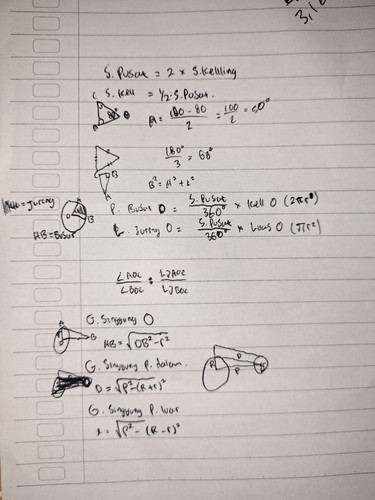 3,1
S. Pusat = 2 x S. Kelling
S. Kell = 1/2 . S. Pusat.
C
A
B
80°
A = (180 - 80)/2 = 100/2 = 50°
180°/3 = 60°
B² = A² + C²
= Juring
A
O
B
AB = Busur
P. Busur O = S. Pusat/360° x Kell O (2πr)
L. Juring O = S. Pusat/360° x Luas O (πr²)
∠AOC/∠BOC = LJAOC/LJBOC
G. Singgung O
A
B
AB = √OB² - r²
G. Singgung P. dalam
D = √P² - (R + r)²
R
D
P
r
G. Singgung P. luar
= √P² - (R - r)²